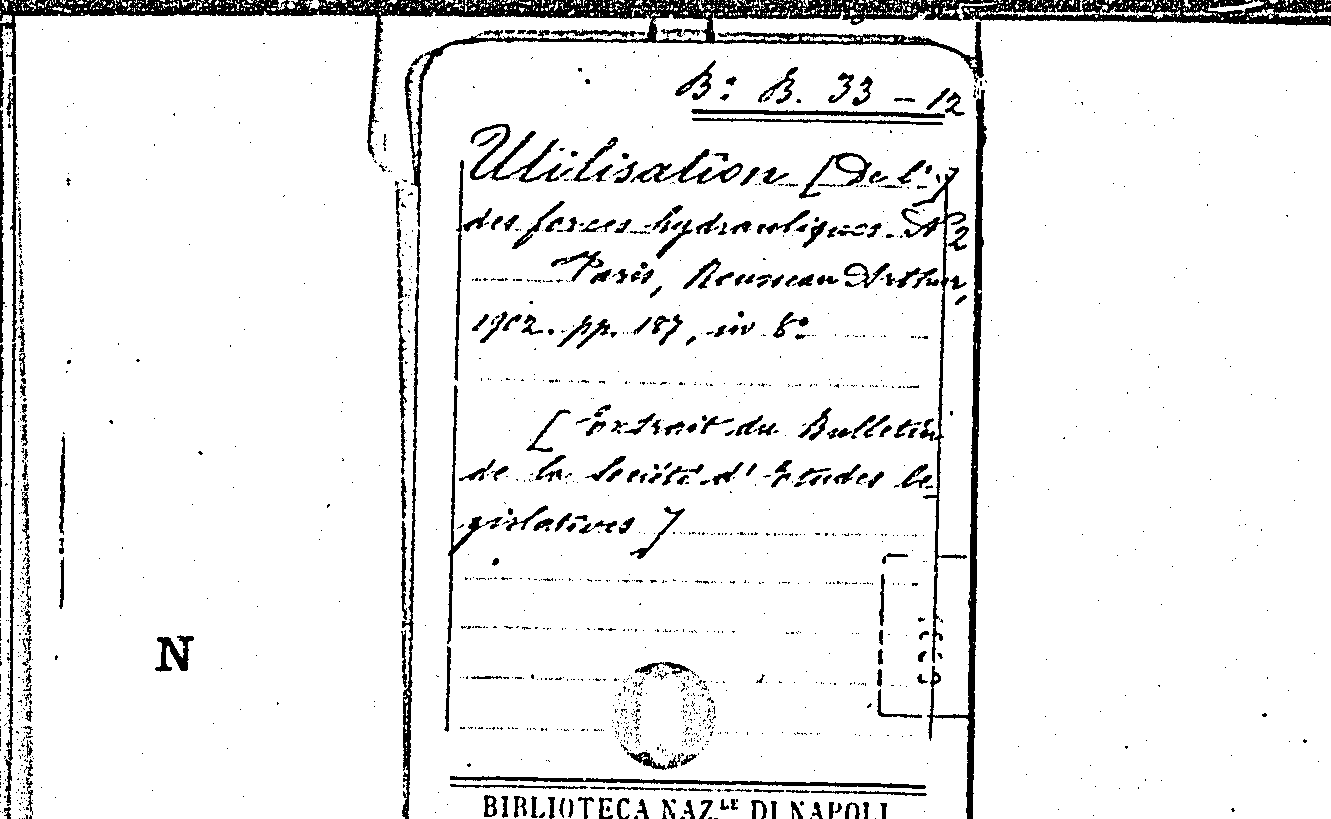 Bª B. 33 - 12
Utilisation [De l']
des forces hydrauliques. Nº 2
Paris, Rousseau Arthur,
1902. pp. 187, in 8º
[Extrait du Bulletin
de la Société d'Etudes le
gislatives]
N
BIBLIOTECA NAZ.LE DI NAPOLI